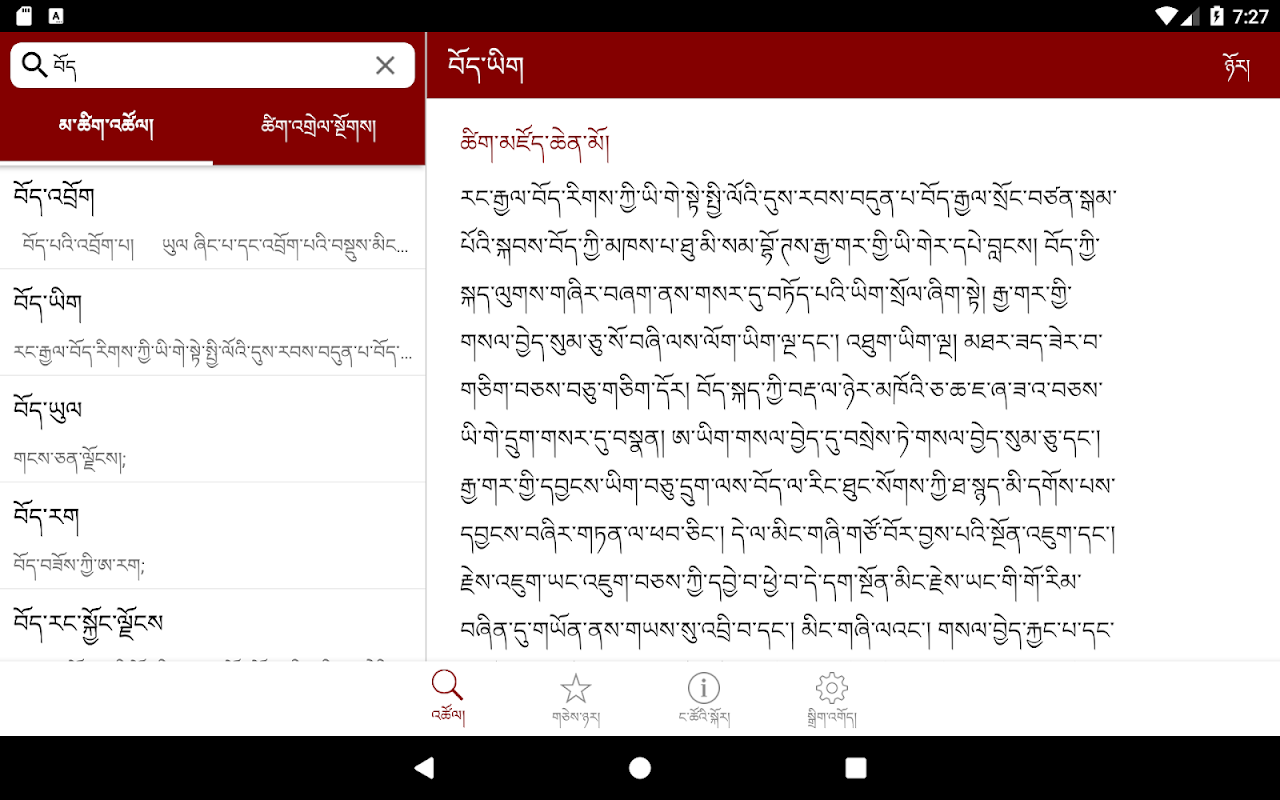 7:27
བོད
བོད་ཡིག
ཉོར།
མ་ཚིག་འཚོལ།
ཚིག་འགྲེལ་སྔོགས།
བོད་འབྲོག
བོད་པའི་འབྲོག་པ། ཡུལ ཞིང་པ་དང་འབྲོག་པའི་བསྡུས་མིང...
བོད་ཡིག
རང་རྒྱལ་བོད་རིགས་ཀྱི་ཡི་གེ་སྟེ་སྤྱི་ལོའི་དུས་རབས་བདུན་པ་བོད་...
བོད་ཡུལ
གངས་ཅན་ལྗོངས།;
བོད་རག
བོད་བཟོས་ཀྱི་ཨ་རག;
བོད་རང་སྐྱོང་ལྗོངས
ཚིག་མཛོད་ཆེན་མོ།
རང་རྒྱལ་བོད་རིགས་ཀྱི་ཡི་གེ་སྟེ་སྤྱི་ལོའི་དུས་རབས་བདུན་པ་བོད་རྒྱལ་སྲོང་བཙན་སྒམ་
པོའི་སྐབས་བོད་ཀྱི་མཁས་པ་ཐུ་མི་སམ་བྷོ་ཊས་རྒྱ་གར་གྱི་ཡི་གེར་དཔེ་བླངས། བོད་ཀྱི་
སྐད་ལུགས་གཞིར་བཞག་ནས་གསར་དུ་བཏོད་པའི་ཡིག་སྲོལ་ཞིག་སྟེ། རྒྱ་གར་གྱི་
གསལ་བྱེད་སུམ་ཅུ་སོ་བཞི་ལས་ལོག་ཡིག་ལྔ་དང་། འཐུག་ཡིག་ལྔ། མཐར་ཟད་ཟེར་བ་
གཅིག་བཅས་བཅུ་གཅིག་དོར། བོད་སྐད་ཀྱི་བརྡ་ལ་ཉེར་མཁོའི་ཅ་ཆ་ཇ་ཞ་ཟ་འ་བཅས་
ཡི་གེ་དྲུག་གསར་དུ་བསྣན། ཨ་ཡིག་གསལ་བྱེད་དུ་བསྲེས་ཏེ་གསལ་བྱེད་སུམ་ཅུ་དང་།
རྒྱ་གར་གྱི་དབྱངས་ཡིག་བཅུ་དྲུག་ལས་བོད་ལ་རིང་ཐུང་སོགས་ཀྱི་ཐ་སྙད་མི་དགོས་པས་
དབྱངས་བཞིར་གཏན་ལ་ཕབ་ཅིང་། དེ་ལ་མིང་གཞི་གཙོ་བོར་བྱས་པའི་སྔོན་འཇུག་དང་།
རྗེས་འཇུག་ཡང་འཇུག་བཅས་ཀྱི་དབྱེ་བ་ཕྱེ་བ་དེ་དག་སྔོན་མིང་རྗེས་ཡང་གི་གོ་རིམ་
བཞིན་དུ་གཡོན་ནས་གཡས་སུ་འབྲི་བ་དང་། མིང་གཞི་ལའང་། གསལ་བྱེད་རྐྱང་པ་དང་
འཚོལ།
གཅེས་ཉར།
ང་ཚོའི་སྐོར།
སྒྲིག་འགོད།